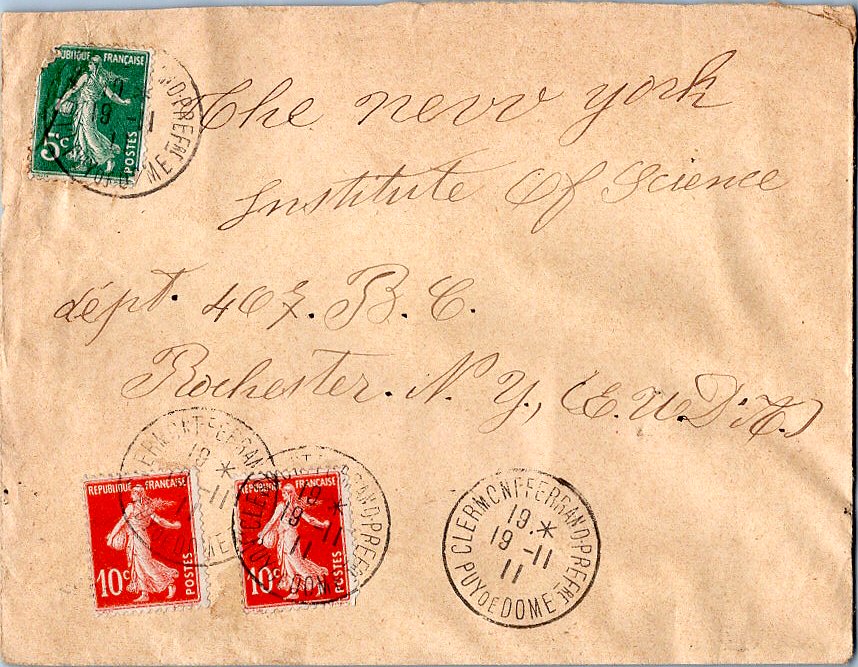 REPUBLIQUE FRANÇAISE
5c
POSTES
The new york
Institute Of Science
dépt. 407. B. C.
Rochester. N. Y., (E. U. D'A.)
REPUBLIQUE FRANÇAISE
10c
POSTES
REPUBLIQUE FRANÇAISE
10c
POSTES
CLERMONT-FERRAND-PREFRE
19 *
19 -11
11
PUY DE DOME